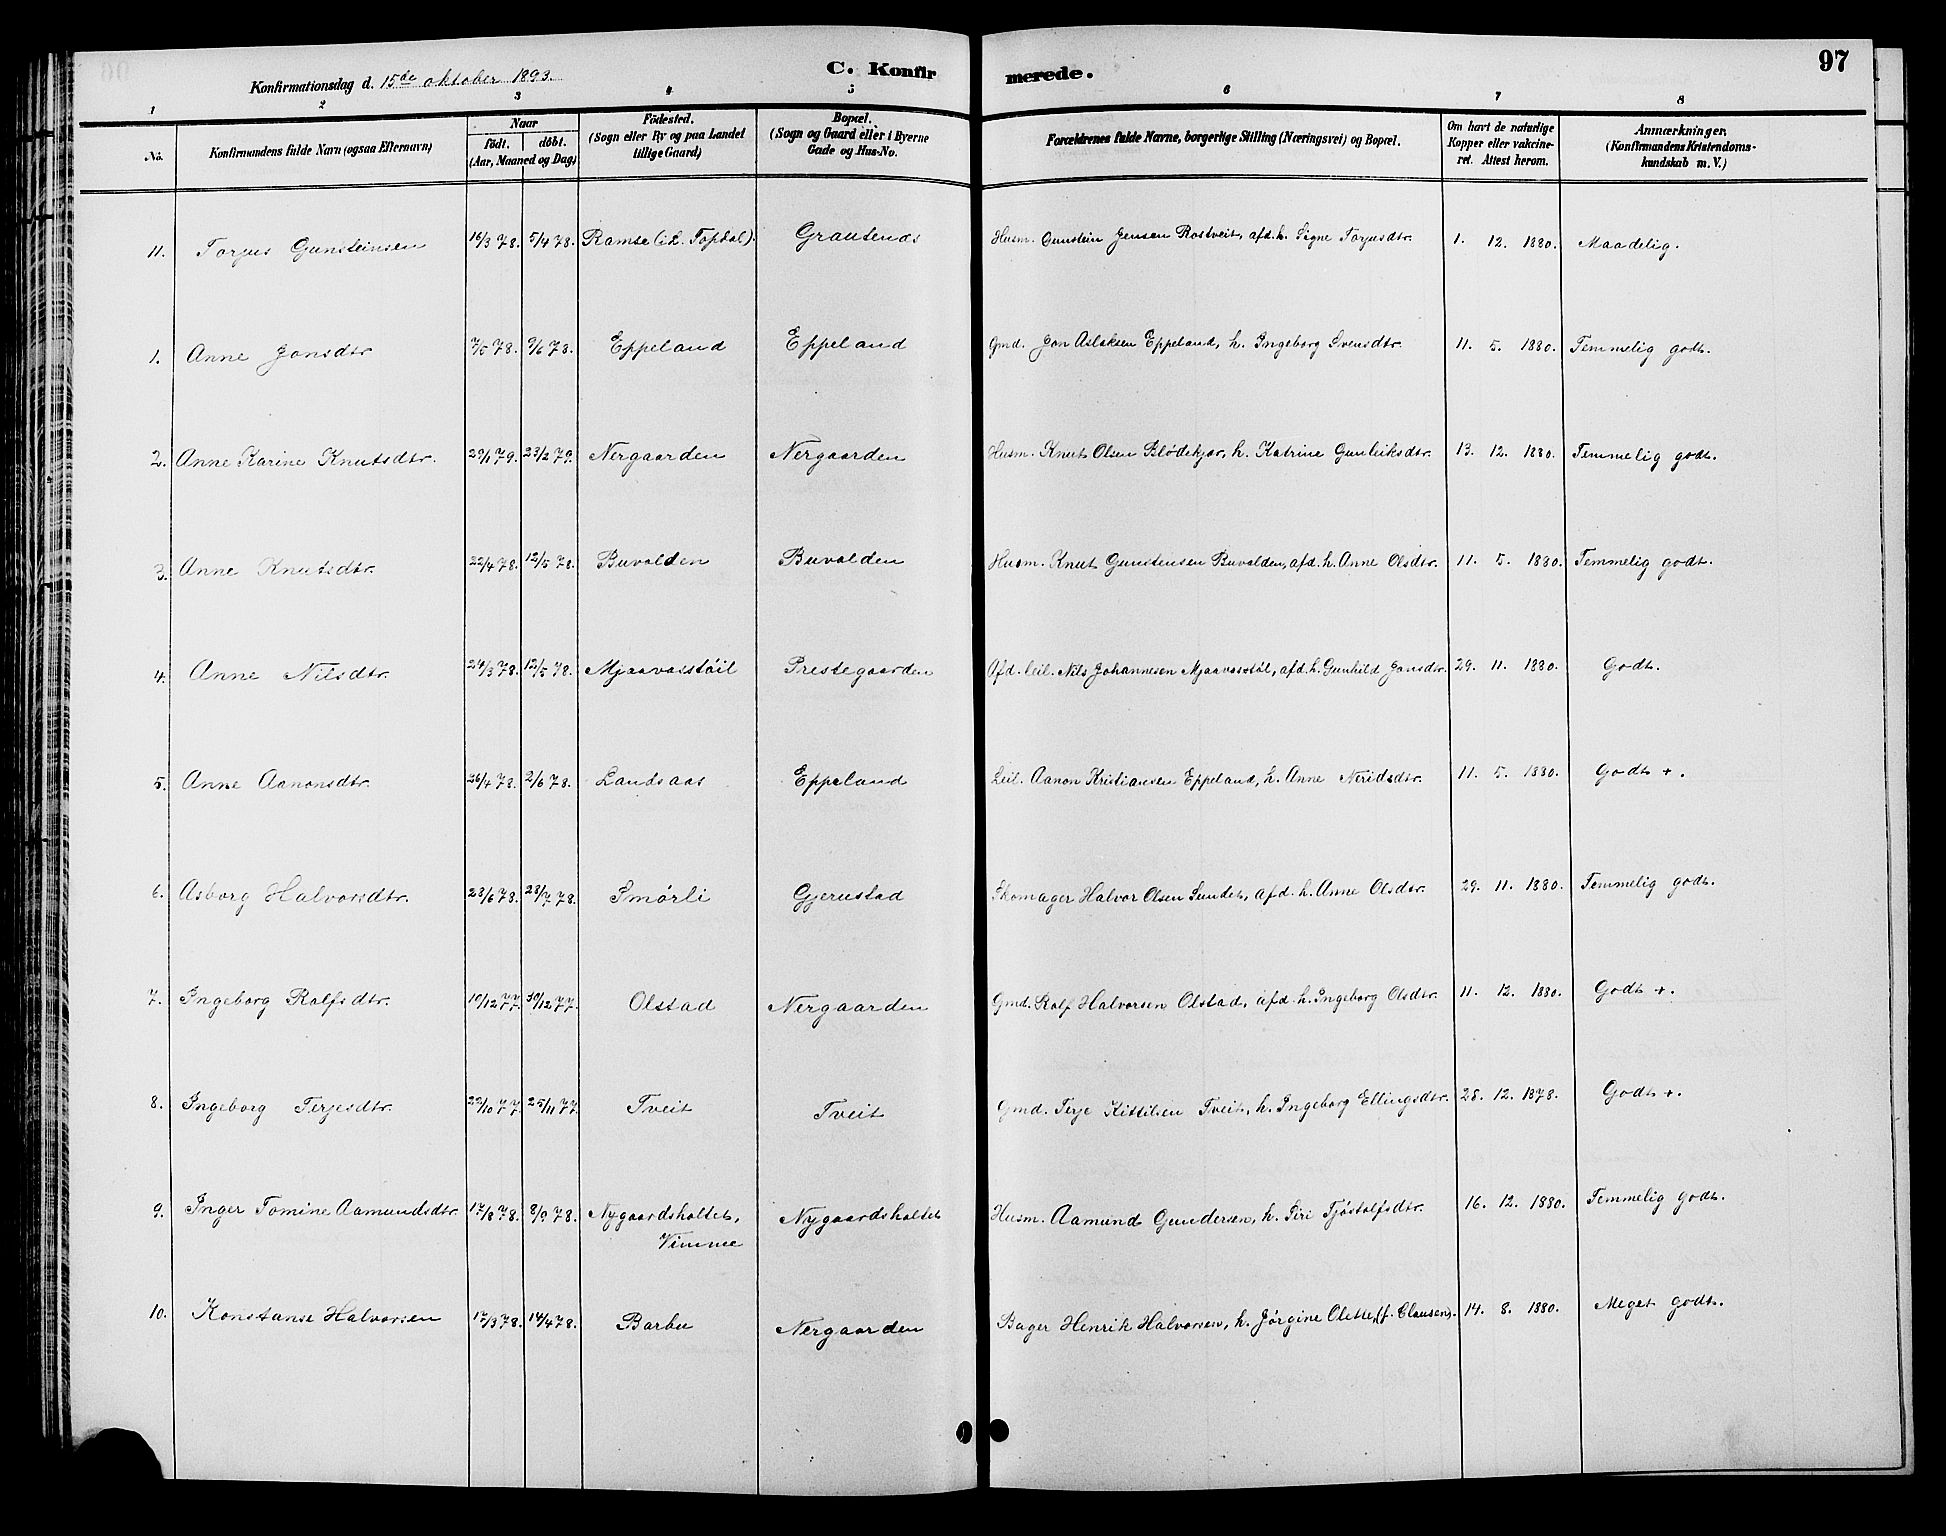 97
Konfirmationsdag d. 15de oktober 1893.
C. Konfirmerede.
1 2 3 4 5 6 7 8
No. Konfirmandens fulde Navn (ogsaa Efternavn)
Naar
födt. döbt.
(Aar, Maaned og Dag)
Födested.
(Sogn eller By og paa Landet
tillige Gaard)
Bopæl.
(Sogn og Gaard eller i Byerne
Gade og Hus-No.
Forældrenes fulde Navne, borgerlige Stilling (Næringsvei) og Bopæl.
Om havt de naturlige
Kopper eller vakcine-
ret. Attest herom.
Anmærkninger.
(Konfirmandens Kristendoms-
kundskab m. V.)
11. Torjus Gunsteinsen 16/3 78. 5/4 78. Ramse (i L. Topdal). Grautenes Husm. Gunstein Jensen Rostveit, afd. h. Signe Torjusdtr. 1. 12. 1880. Maadelig.
1. Anne Jonsdtr. 7/5 78. 9/6 78. Eppeland Eppeland Gmd. Jon Aslaksen Eppeland, h. Ingeborg Svensdtr. 11. 5. 1880. Temmelig godt.
2. Anne Karine Knutsdtr. 29/1 79. 23/2 79. Nergaarden Nergaarden Husm. Knut Olsen Blødekjær, h. Katrine Gunleiksdtr. 13. 12. 1880. Temmelig godt.
3. Anne Knutsdtr. 22/4 78. 12/5 78. Buvolden Buvolden Husm. Knut Gunstensen Buvolden, afd. h. Anne Olsdtr. 11. 5. 1880. Temmelig godt.
4. Anne Nilsdtr. 24/3 78. 12/5 78. Mjaavasstöil Prestegaarden Afd. leil. Nils Johannesen Mjaavasstöl, afd. h. Gunhild Jonsdtr. 29. 11. 1880. Godt.
5. Anne Aanonsdtr. 26/4 78. 2/6 78. Landsaas Eppeland Leil. Aanon Kristiansen Eppeland, h. Anne Neridsdtr. 11. 5. 1880. Godt +.
6. Asborg Halvorsdtr. 23/6 78. 28/7 78. Smørli Gjerustad Skomager Halvor Olsen Sundet, afd. h. Anne Olsdtr. 29. 11. 1880. Temmelig godt.
7. Ingeborg Rolfsdtr. 10/12 77. 30/12 77. Olstad Nergaarden Gmd. Rolf Halvorsen Olstad, afd. h. Ingeborg Olsdtr. 11. 12. 1880. Godt +.
8. Ingeborg Terjesdtr. 22/10 77. 25/11 77. Tveit Tveit Gmd. Terje Kittilsen Tveit, h. Ingeborg Ellingsdtr. 28. 12. 1878. Godt +.
9. Inger Tomine Aamundsdtr. 17/8 78. 8/9 78. Nygaardsholtet, Nygaardsholtet Husm. Aamund Gundersen, h. Siri Tjöstolfsdtr. 16. 12. 1880. Temmelig godt.
Vimme
10. Konstanse Halvorsen 17/3 78. 14/4 78. Barbu Nergaarden Bager Henrik Halvorsen, h. Jörgine Olette, (f. Clausen). 14. 8. 1880. Meget godt.